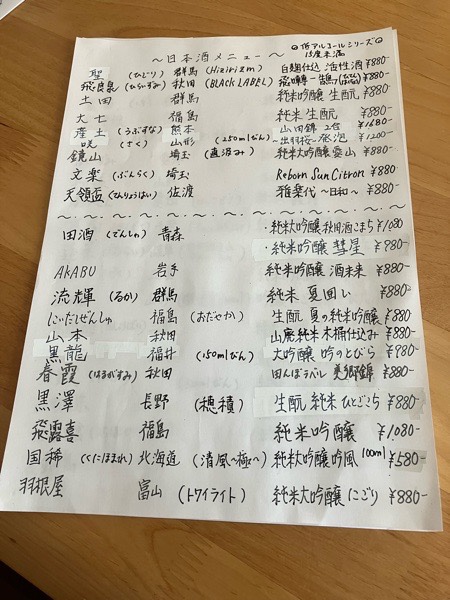 ～日本酒メニュー～
低アルコールシリーズ
15度未満
聖 (ひじり) 群馬 (Hizirizm) 白麹仕込 活性酒 ¥880-
飛良泉 (ひらいずみ) 秋田 (BLACK LABEL) 飛囀 ¥880-
土田 群馬 純米吟醸 生酛
大七 福島 純米 生酛 ¥880-
産土 (うぶすな) 熊本 山田錦 2合 ¥1680-
咲 (さく) 山形 (250mlびん) ～出羽桜～ 発泡 ¥1200-
鏡山 埼玉 (直汲み) 純米大吟醸 愛山 ¥880-
文楽 (ぶんらく) 埼玉 Reborn Sun Citron ¥880-
天領盃 (てんりょうはい) 佐渡 雅楽代 ～日和～ ¥880-
田酒 (でんしゅ) 青森 ・純米大吟醸 秋田酒こまち ¥1080
・純米吟醸 彗星 ¥980-
AKABU 岩手 純米吟醸 酒未来 ¥880-
流輝 (るか) 群馬 純米 夏囲い ¥880-
にいだしぜんしゅ 福島 (おだやか) 生酛 夏の純米吟醸 ¥880
山本 秋田 山廃純米 木桶仕込み ¥880-
黒龍 福井 (150mlびん) 大吟醸 吟のとびら ¥980-
春霞 (はるがすみ) 秋田 田んぼラベル 美郷錦 ¥880-
黒澤 長野 (穂積) 生酛 純米 ひとごこち ¥880-
飛露喜 福島 純米吟醸 ¥1,080-
国稀 (くにまれ) 北海道 (清風～極～) 純大吟醸 吟風 100ml ¥580-
羽根屋 富山 (トワイライト) 純米大吟醸 にごり ¥880-